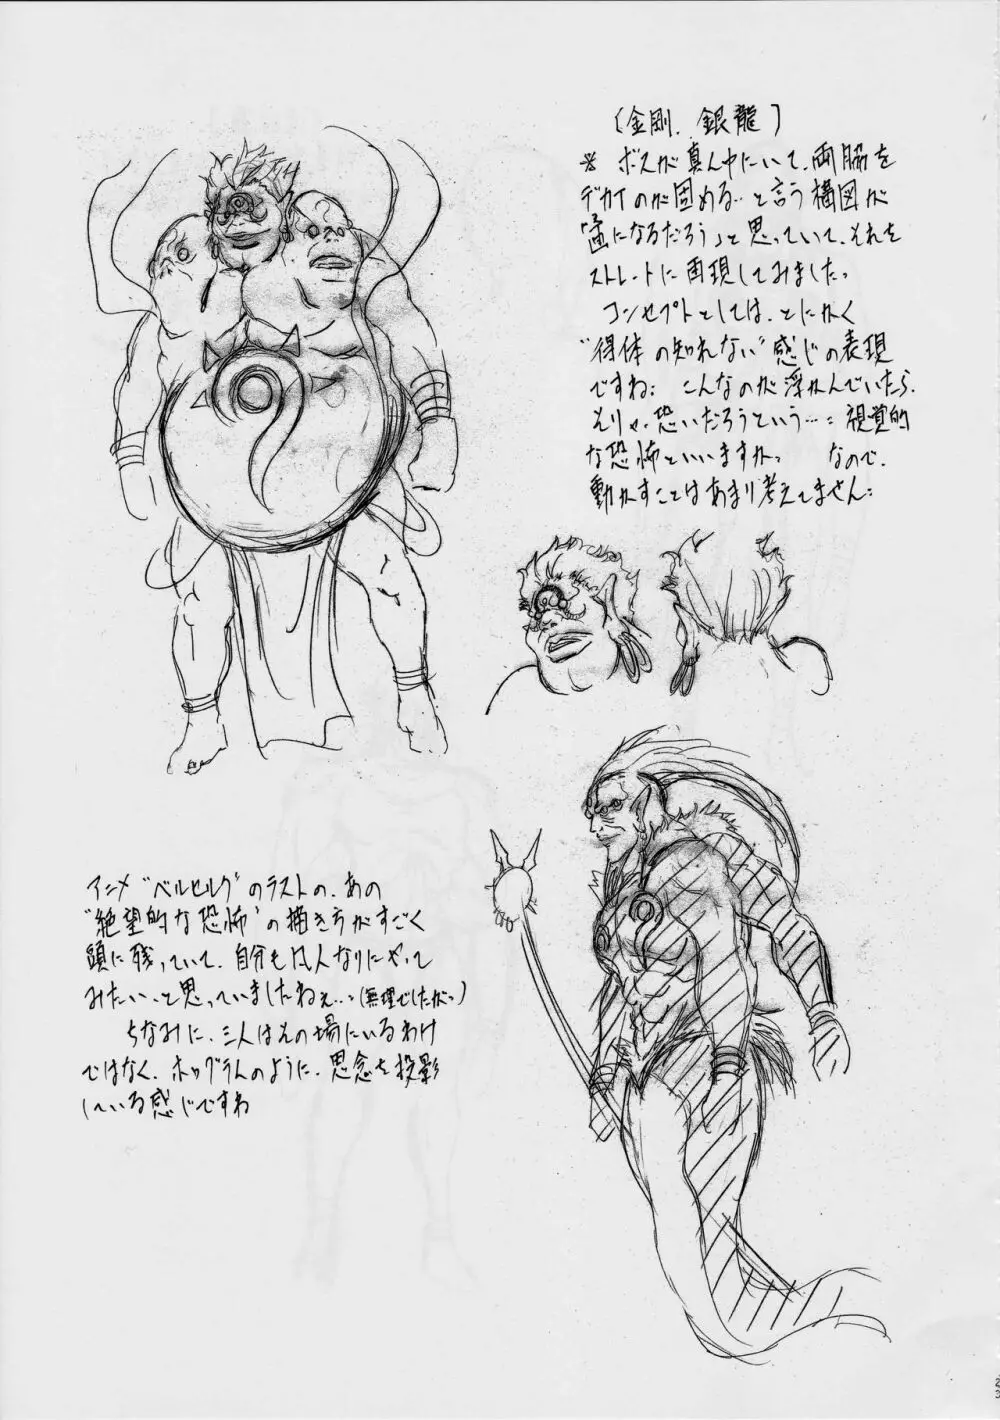 (金剛、銀龍)
※ ボスが真ん中にいて、両脇を
デカイのが固める… と言う構図が
になるだろう」と思っていて、それを
ストレートに再現してみました。
コンセプトとしては、とにかく
"得体の知れない"感じの表現
ですね: こんなのが浮かんでいたら、
そりゃ、恐いだろうという…: 視覚的
な恐怖といいますか。 なので、
動かすことはあまり考えてません:
アニメ"ベルセルク"のラストの、あの
"絶望的な恐怖"の描き方がすごく
頭に残っていて、自分も凡人なりにやって
みたい、と思っていましたねぇ…。(無理でしたが。)
ちなみに、三人はその場にいるわけ
ではなく、ホログラムのように、思念を投影
している感じですね
23